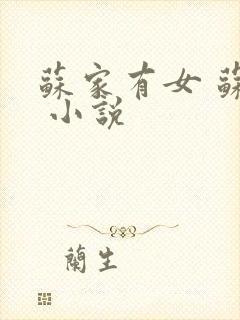 蘇家有女 蘇
小說
蘭生